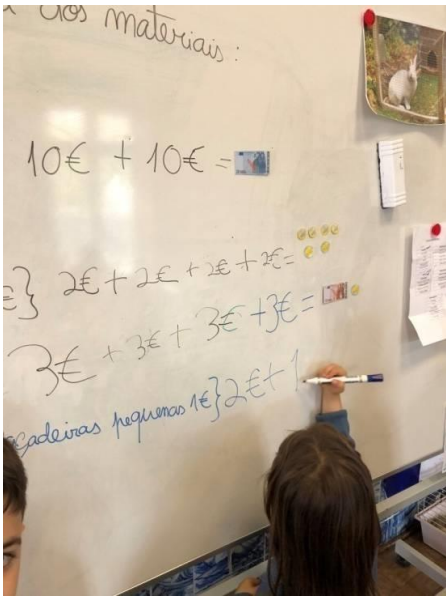 dos materiais:
10€ + 10€ =
€} 2€ + 2€ + 2€ + 2€ =
3€ + 3€ + 3€ + 3€ =
çadeiras pequenas 1€} 2€ + 1